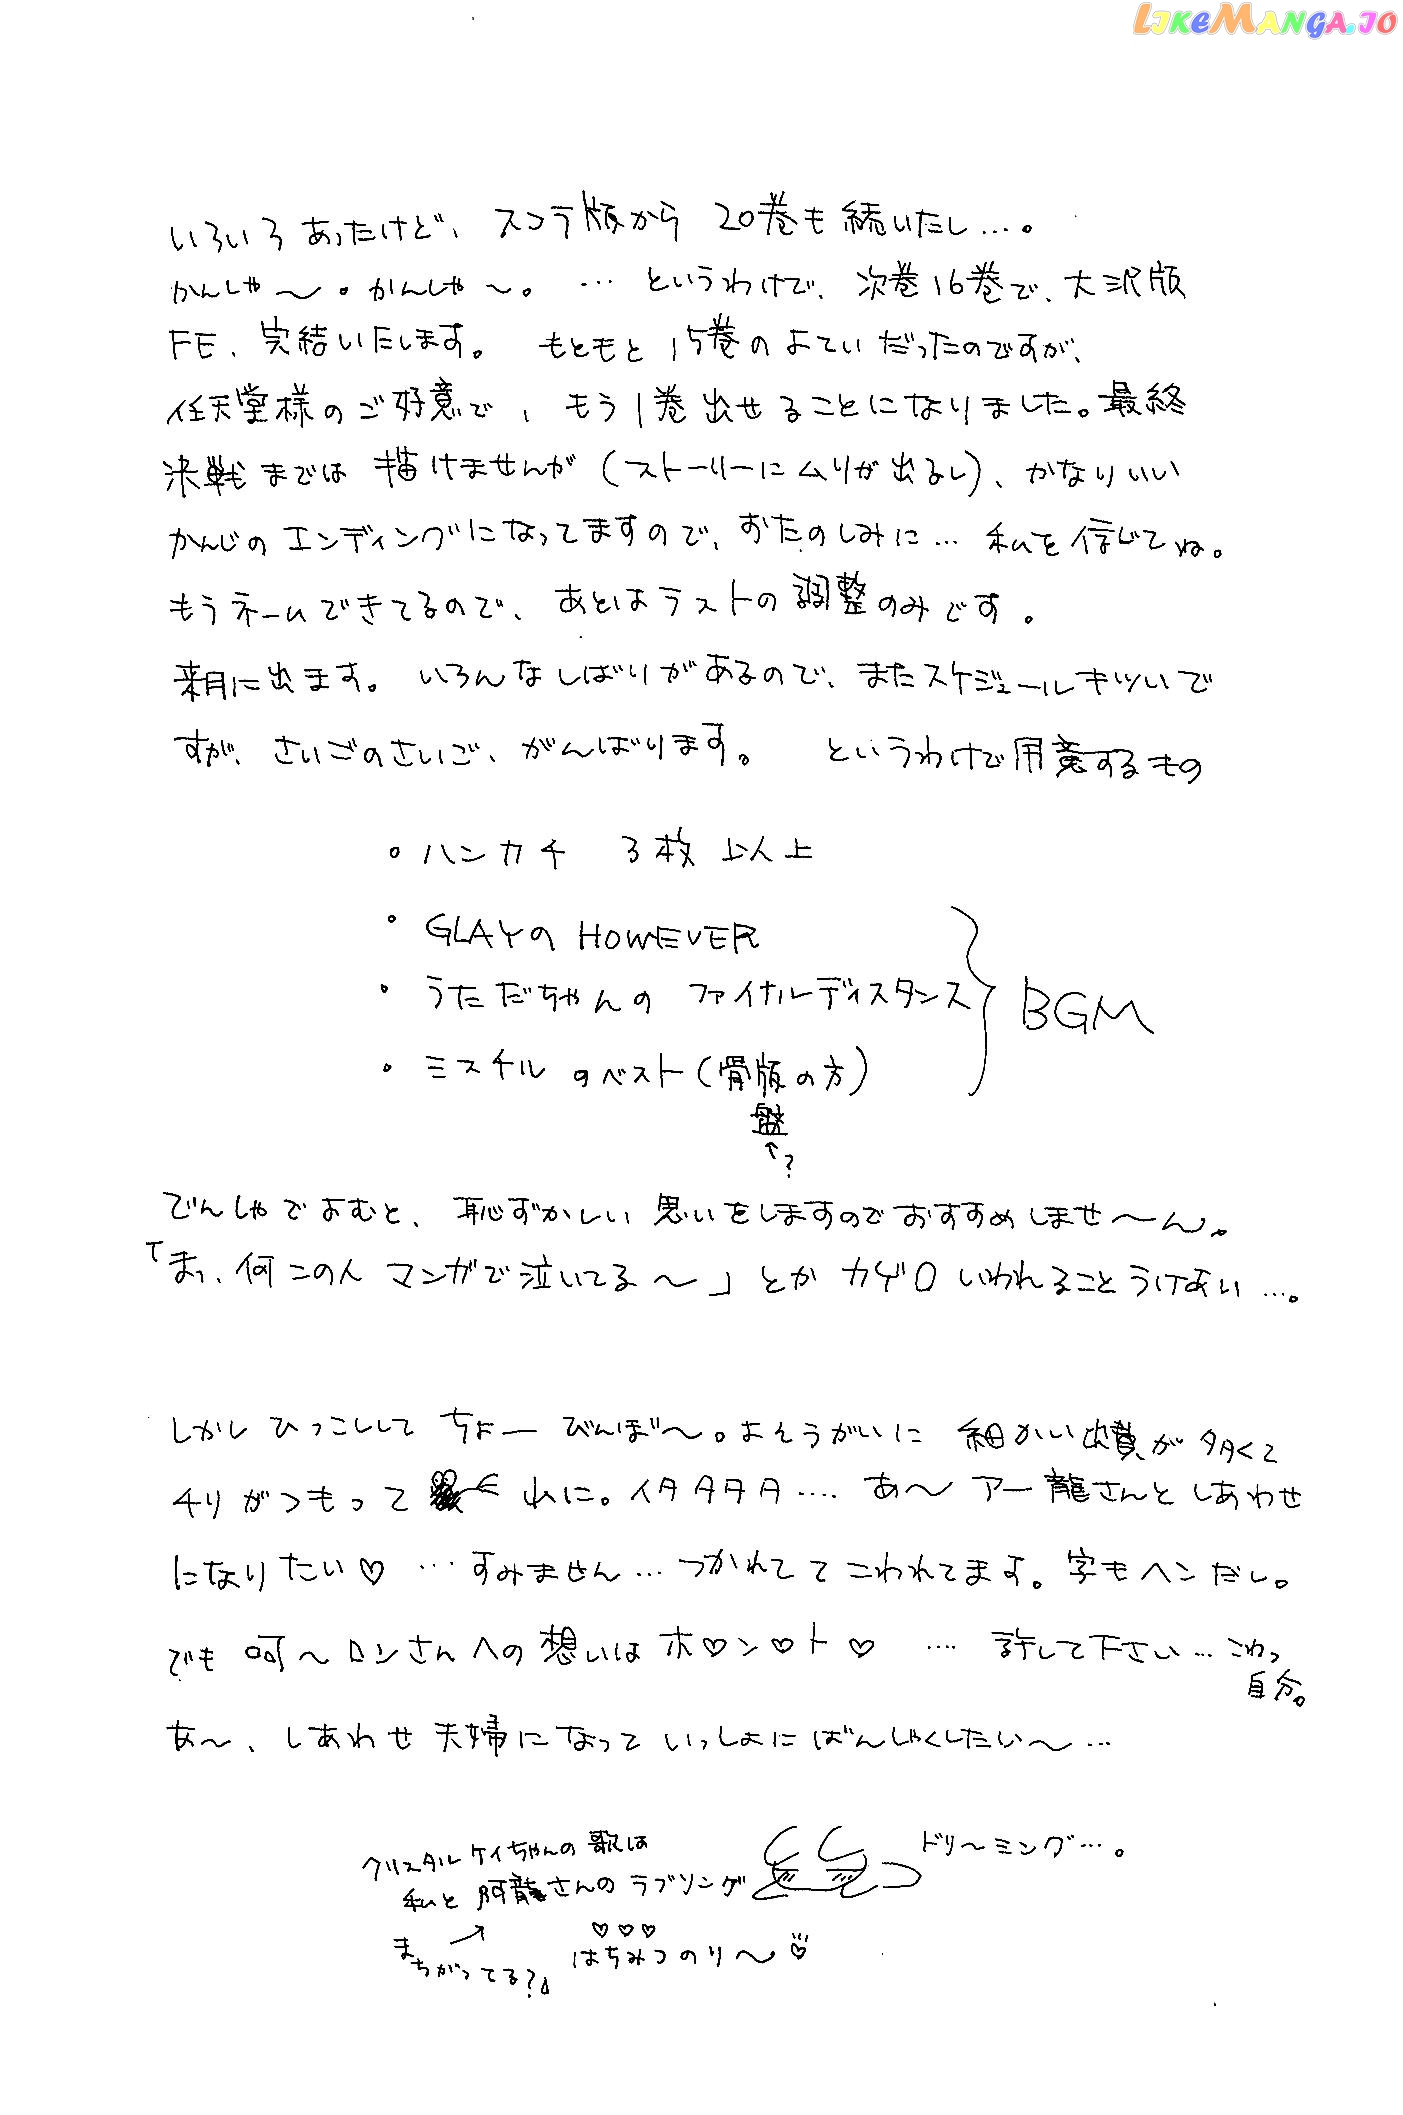 LIKEMANGA.IO
いろいろあったけど、スコラ版から20巻も続いたし…。
かんしゃ〜。かんしゃ〜。…というわけで、次巻16巻で、大沢版
FE、完結いたします。もともと15巻のよていだったのですが、
任天堂様のご好意で、もう1巻出せることになりました。最終
決戦までは描けませんが(ストーリーにムリが出るし)、かなりいい
かんじのエンディングになってますので、おたのしみに…私を信じてね。
もうネームできてるので、あとはラストの調整のみです。
来月に出ます。いろんなしばりがあるので、またスケジュールキツいで
すが、さいごのさいご、がんばります。というわけで用意するもの
・ハンカチ 3枚以上
・GLAYのHOWEVER
・うただちゃんのファイナルディスタンス
・ミスチルのベスト(骨版の方)
BGM
盤
↑?
でんしゃでよむと、恥ずかしい思いをしますのでおすすめしませ〜ん。
「まっ、何この人マンガで泣いてる〜」とかカゲ口いわれることうけあい…。
しかしひっこしして ちょー びんぼ〜。よそうがいに細かい出費が多くて
チリがつもって れに。イタタタタ…. あ〜アー龍さんとしあわせ
になりたい♡ …すみません…つかれててこわれてます。字もヘンだし。
でも呵〜ロンさんへの想いはホ♡ン♡ト♡ …. 許して下さい…こわっ
自分。
あ〜、しあわせ夫婦になっていっしょにばんしゃくしたい〜…
クリスタルケイちゃんの歌は
私と阿龍さんのラブソング
ドリ〜ミング…。
まちがってる?
♡♡♡
はちみつのり〜♡